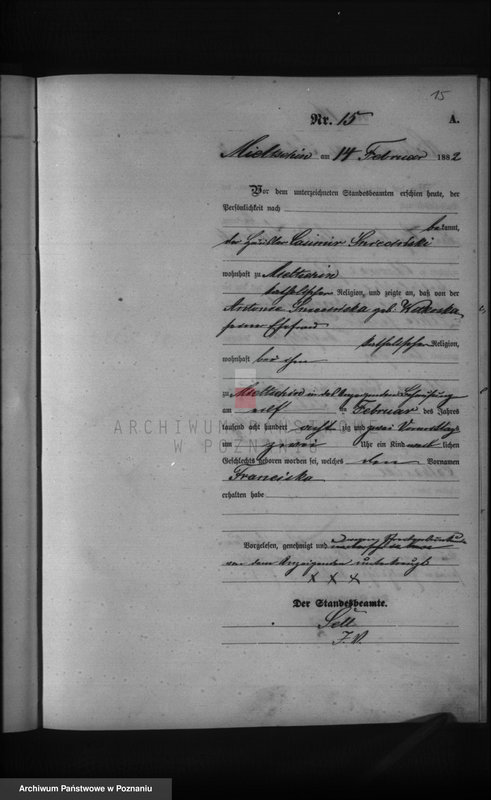 15
Nr. 15 A.
Mieltschin am 14 Februar 1882
Vor dem unterzeichneten Standesbeamten erschien heute, der
Persönlichkeit nach
bekannt,
der Häusler Casimir
wohnhaft zu Mieltschin
katholischer Religion, und zeigte an, daß von der
Antonie geb.
seiner Ehefrau
katholischer Religion,
wohnhaft bei ihm
zu Mieltschin in des Anzeigenden Behausung
am elf ten Februar des Jahres
tausend acht hundert acht zig und zwei Vormittags
um zwei Uhr ein Kind weib lichen
Geschlechts geboren worden sei, welches den Vornamen
Franciska
erhalten habe
ARCHIWUM PAŃSTWOWE
W POZNANIU
Vorgelesen, genehmigt und wegen
von dem Anzeigenden unterkreuzt
X X X
Der Standesbeamte.
Sell
J. V.
Archiwum Państwowe w Poznaniu